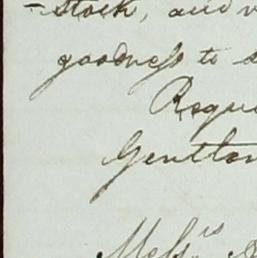 - stock, and
goodness to
Reque
Gentlem
Messrs